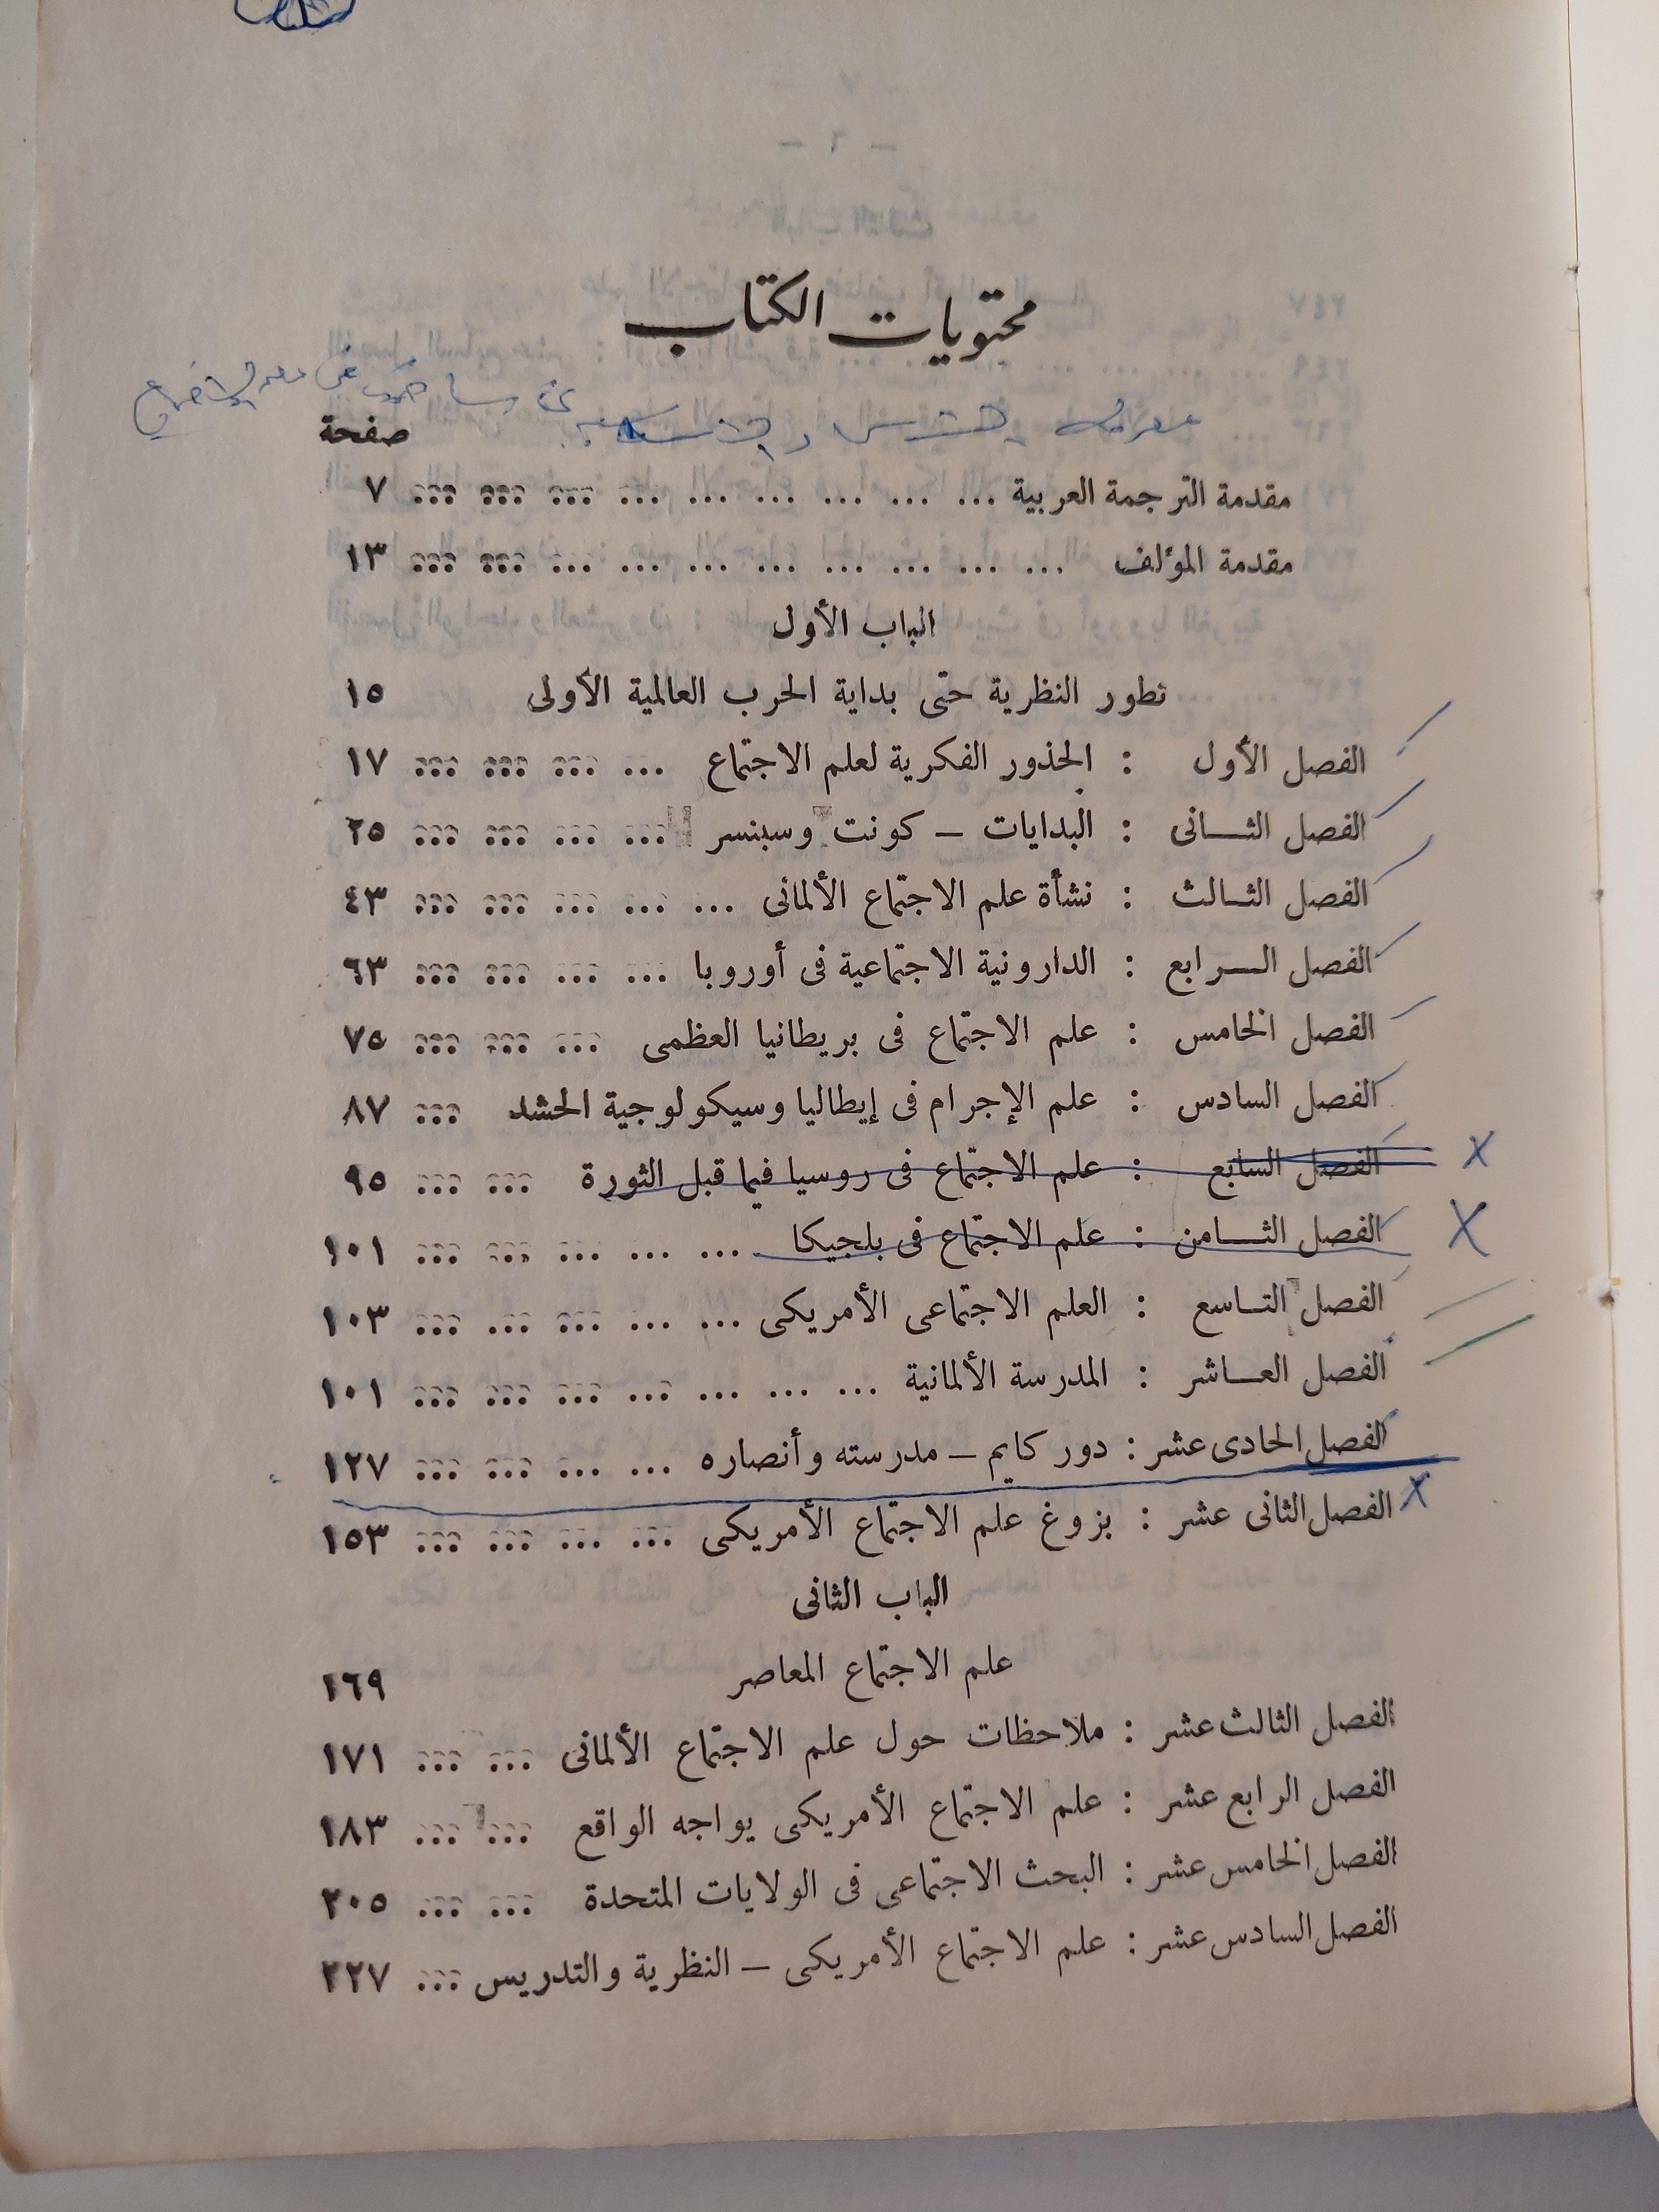 محتويات الكتاب
صفحة
مقدمة الترجمة العربية ... ... ... ... ... ... ... ... ... ٧
مقدمة المؤلف ... ... ... ... ... ... ... ... ... ... ١٣
الباب الأول
تطور النظرية حتى بداية الحرب العالمية الأولى ١٥
الفصل الأول : الجذور الفكرية لعلم الاجتماع ... ... ... ... ١٧
الفصل الثـانى : البدايات – كونت وسبنسر ... ... ... ... ٢٥
الفصل الثـالث : نشأة علم الاجتماع الألمانى ... ... ... ... ... ٤٣
الفصل الـرابع : الدارونية الاجتماعية فى أوروبا ... ... ... ... ٦٣
الفصل الخامس : علم الاجتماع فى بريطانيا العظمى ... ... ... ٧٥
الفصل السادس : علم الإجرام فى إيطاليا وسيكولوجية الحشد ... ٨٧
الفصل السابع : علم الاجتماع فى روسيا فيما قبل الثورة ... ... ٩٥
الفصل الثـامن : علم الاجتماع فى بلجيكا ... ... ... ... ... ١٠١
الفصل التـاسع : العلم الاجتماعى الأمريكى ... ... ... ... ... ١٠٣
الفصل العـاشر : المدرسة الألمانية ... ... ... ... ... ... ... ١٠١
الفصل الحادى عشر : دور كايم – مدرسته وأنصاره ... ... ... ... ١٢٧
الفصل الثانى عشر : بزوغ علم الاجتماع الأمريكى ... ... ... ... ١٥٣
الباب الثانى
علم الاجتماع المعاصر ١٦٩
الفصل الثالث عشر : ملاحظات حول علم الاجتماع الألمانى ... ... ١٧١
الفصل الرابع عشر : علم الاجتماع الأمريكى يواجه الواقع ... ... ١٨٣
الفصل الخامس عشر : البحث الاجتماعى فى الولايات المتحدة ... ... ٢٠٥
الفصل السادس عشر : علم الاجتماع الأمريكى – النظرية والتدريس ... ٢٢٧